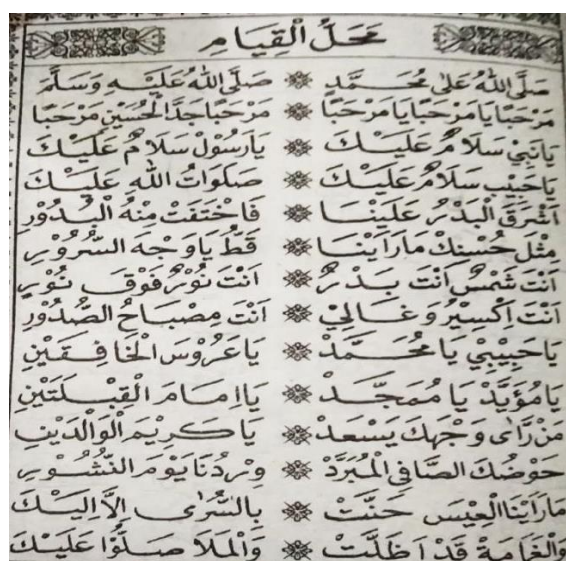 مَحَلُّ الْقِيَامِ
صَلَّى اللهُ عَلٰى مُحَمَّدٍ ❋ صَلَّى اللهُ عَلَيْهِ وَسَلَّمَ
مَرْحَبًا يَا مَرْحَبًا يَا مَرْحَبًا ❋ مَرْحَبًا جَدَّ الْحُسَيْنِ مَرْحَبًا
يَا نَبِيْ سَلَامٌ عَلَيْكَ ❋ يَا رَسُوْلْ سَلَامٌ عَلَيْكَ
يَا حَبِيْبْ سَلَامٌ عَلَيْكَ ❋ صَلَوَاتُ اللهِ عَلَيْكَ
اَشْرَقَ الْبَدْرُ عَلَيْنَا ❋ فَاخْتَفَتْ مِنْهُ الْبُدُوْرِ
مِثْلَ حُسْنِكْ مَا رَاَيْنَا ❋ قَطُّ يَا وَجْهَ السُّرُوْرِ
اَنْتَ شَمْسٌ اَنْتَ بَدْرٌ ❋ اَنْتَ نُوْرٌ فَوْقَ نُوْرِ
اَنْتَ اِكْسِيْرُ وَغَالِيْ ❋ اَنْتَ مِصْبَاحُ الصُّدُوْرِ
يَا حَبِيْبِيْ يَا مُحَمَّدْ ❋ يَا عَرُوْسَ الْخَافِقَيْنِ
يَا مُؤَيَّدْ يَا مُمَجَّدْ ❋ يَا اِمَامَ الْقِبْلَتَيْنِ
مَنْ رَاٰى وَجْهَكَ يَسْعَدْ ❋ يَا كَرِيْمَ الْوَالِدَيْنِ
حَوْضُكَ الصَّافِى الْمُبَرَّدْ ❋ وِرْدُنَا يَوْمَ النُّشُوْرِ
مَا رَاَيْنَا الْعِيْسَ حَنَّتْ ❋ بِالسُّرٰى اِلَّا اِلَيْكَ
وَالْغَمَامَةْ قَدْ اَظَلَّتْ ❋ وَالْمَلَا صَلُّوْا عَلَيْكَ